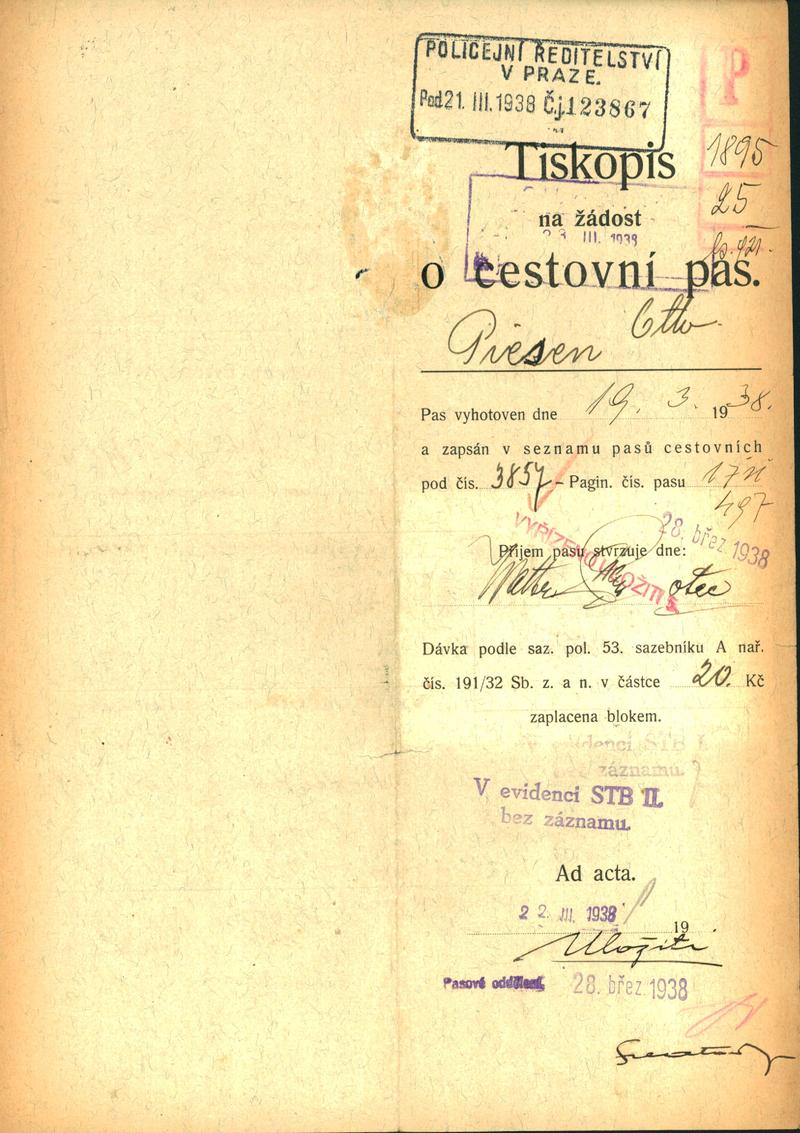 POLICEJNÍ ŘEDITELSTVÍ
V PRAZE.
Pod 21. III. 1938 Č.j. 123867
P
1895
25
Tiskopis
na žádost
23 III. 1938
o cestovní pas.
Piesen Otto
Pas vyhotoven dne 19. 3. 1938.
a zapsán v seznamu pasů cestovních
pod čís. 3857 - Pagin. čís. pasu
497
28. břez. 1938
VYŘÍZENO ULOŽITI
Příjem pasu stvrzuje dne:
otec
Dávka podle saz. pol. 53. sazebníku A nař.
čís. 191/32 Sb. z. a n. v částce 20. Kč
zaplacena blokem.
V evidenci STB I.
bez záznamu.
V evidenci STB II.
bez záznamu.
Ad acta.
22. III. 1938
19
Uložiti
Pasové oddělení, 28. břez. 1938